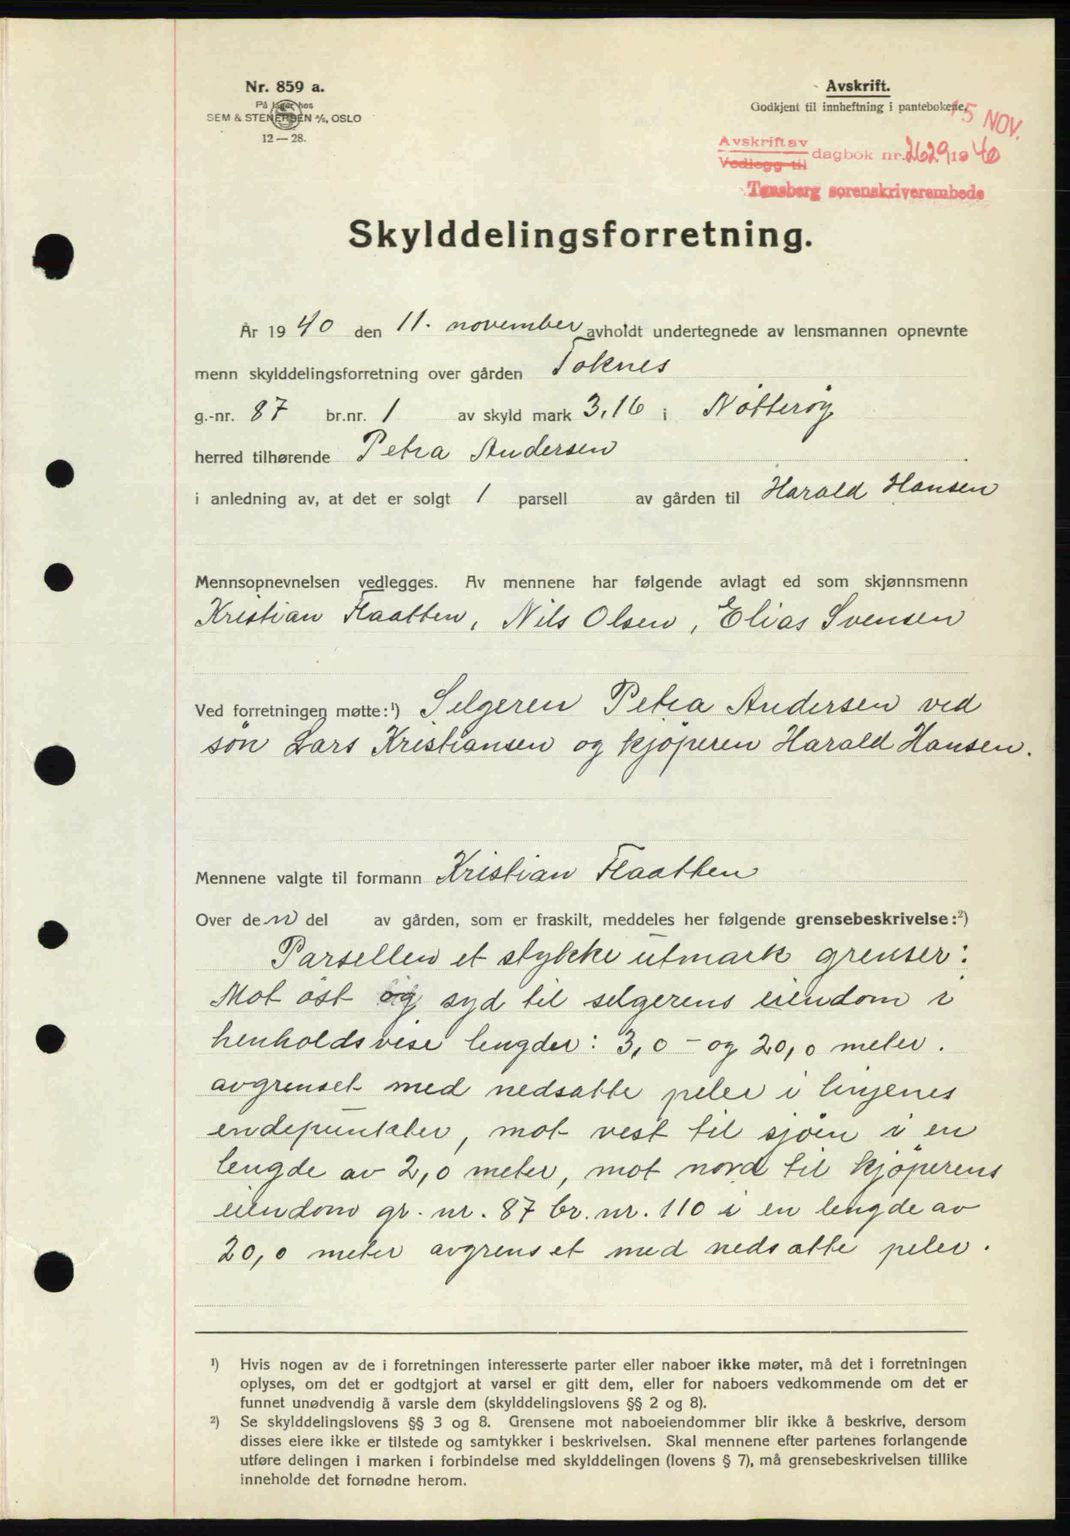 Nr. 859 a.
På lager hos
SEM & STENERSEN A/S, OSLO
12—28.
Avskrift.
Godkjent til innheftning i pantebøkene.
15 NOV.
Avskrift av
Vedlegg til
dagbok nr. 2629 1940
Tønsberg sorenskriverembede
Skylddelingsforretning.
År 1940 den 11. november avholdt undertegnede av lensmannen opnevnte
menn skylddelingsforretning over gården Toknes
g.-nr. 87 br.nr. 1 av skyld mark 3,16 i Nøtterøy
herred tilhørende Petra Andersen
i anledning av, at det er solgt 1 parsell av gården til Harald Hansen
Mennsopnevnelsen vedlegges. Av mennene har følgende avlagt ed som skjønnsmenn
Kristian Flaatten, Nils Olsen, Elias Svensen
Ved forretningen møtte:¹) Selgeren Petra Andersen ved
søn Lars Kristiansen og kjøperen Harald Hansen.
Mennene valgte til formann Kristian Flaatten
Over den del av gården, som er fraskilt, meddeles her følgende grensebeskrivelse:²)
Parsellen et stykke utmark grenser:
Mot øst og syd til selgerens eiendom i
henholdsvise lengder: 3,0 – og 20,0 meter.
avgrenset med nedsatte peler i linjenes
endepunkter, mot vest til sjøen i en
lengde av 2,0 meter, mot nord til kjøperens
eiendom gr. nr. 87 br. nr. 110 i en lengde av
20,0 meter avgrenset med nedsatte peler.
¹) Hvis nogen av de i forretningen interesserte parter eller naboer ikke møter, må det i forretningen
oplyses, om det er godtgjort at varsel er gitt dem, eller for naboers vedkommende om det er
funnet unødvendig å varsle dem (skylddelingslovens §§ 2 og 8).
²) Se skylddelingslovens §§ 3 og 8. Grensene mot naboeiendommer blir ikke å beskrive, dersom
disses eiere ikke er tilstede og samtykker i beskrivelsen. Skal mennene efter partenes forlangende
utføre delingen i marken i forbindelse med skylddelingen (lovens § 7), må grensebeskrivelsen tillike
inneholde det fornødne herom.